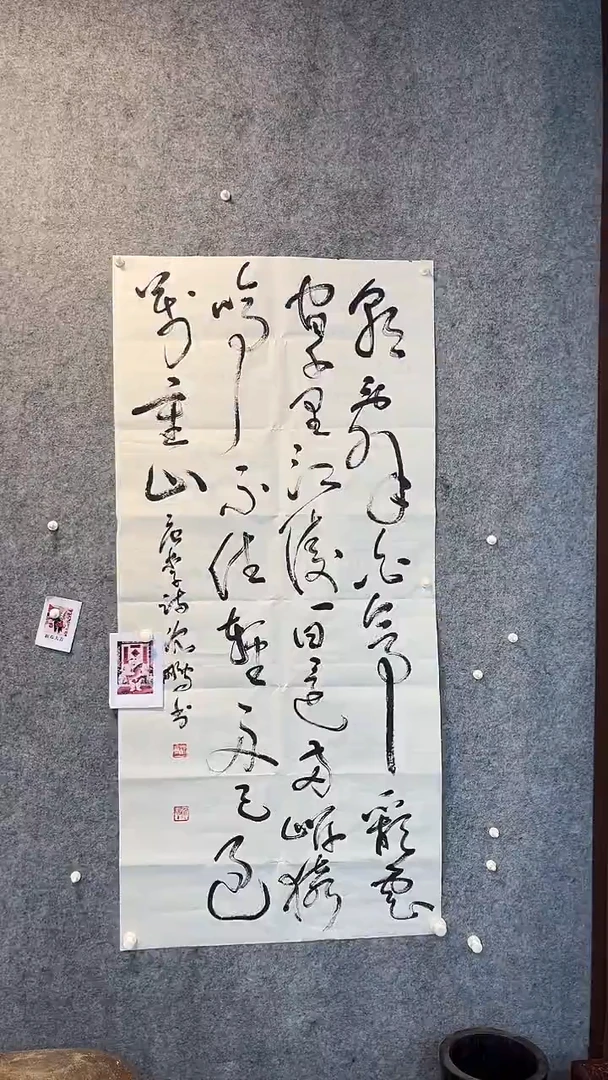 朝辭白帝彩雲
間千里江陵一日還兩岸猿
啼不住輕舟已過
萬重山 李詩沈鵬書